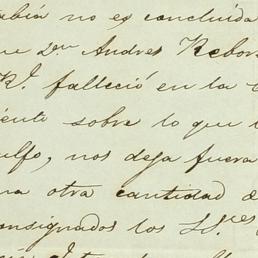 abia no es concluida
ue Dn Andres Rebor
R. falleció en la
iente sobre lo que
ulfo, nos deja fuera
na otra cantidad de
onsignados los SS.res